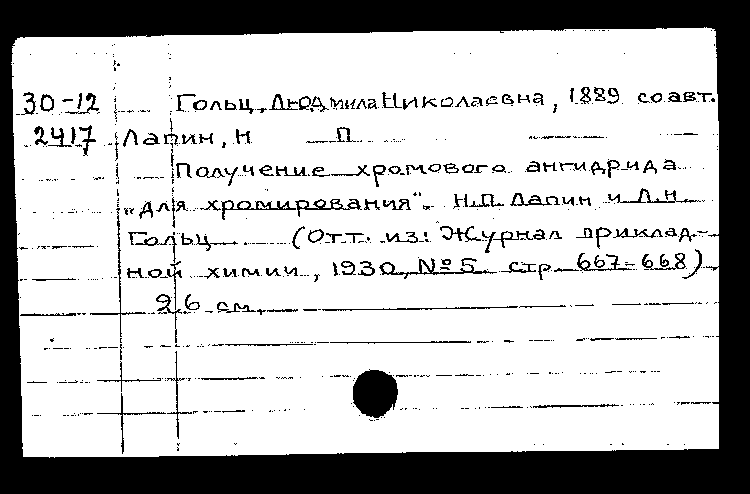 30-12 Гольц, Людмила Николаевна, 1889 соавт.
2417 Лапин, Н П
Получение хромового ангидрида
„для хромирования“. Н.П. Лапин и Л.Н.
Гольц (Отт. из: Журнал приклад-
ной химии, 1930, № 5. стр. 667-668)
26 см.